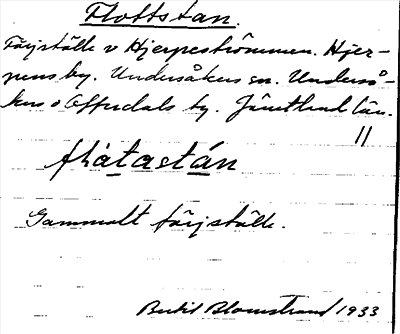 Flottstan.
Färjställe v Hjerpeströmmen. Hjer-
pens by. Undersåkers sn. Underså-
kers o Offerdals tg. Jämtland län.
11
flå̀tastán
Gammalt färjställe.
Bertil Blomstrand 1933